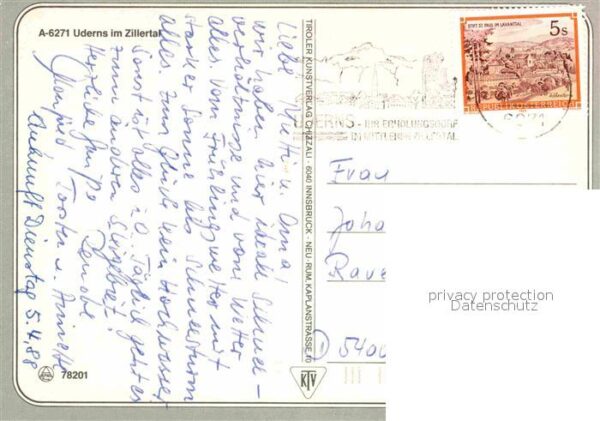 A-6271 Uderns im Zillertal
Liebe Mutti u. Oma!
wir haben hier ideale Schnee-
verhältnisse und vom Wetter
alles. Vom Frühlingswetter mit
starker Sonne bis Schneesturm
alles. Zum Glück kein Hochwasser
Sonst ist alles i.O. Täglich geht es
zum anderen Skigebiet.
Herzliche Grüße
Manfred Torsten u. Annette
Ankunft Dienstag 5.4.88
78201
TIROLER KUNSTVERLAG CHIZZALI · 6040 INNSBRUCK - NEU-RUM, KAPLANSTRASSE
KTV
STIFT ST. PAUL IM LAVANTTAL
5s
REPUBLIK ÖSTERREICH
UDERNS - IHR ERHOLUNGSDORF
IM MITTLEREN ZILLERTAL
6271
Frau
Joha
Rave
D 5400
privacy protection
Datenschutz